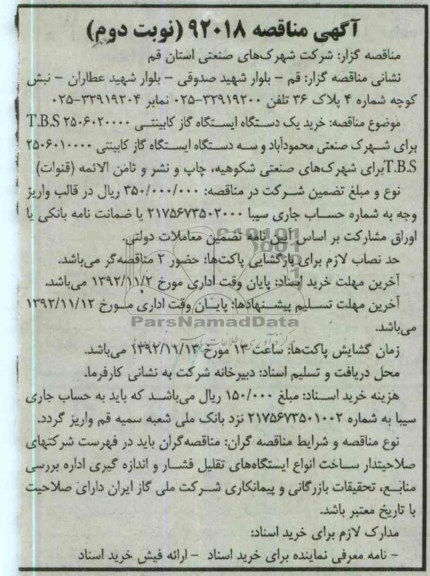 آگهی مناقصه ۹۲۰۱۸ (نوبت دوم)
مناقصه گزار: شرکت شهرک‌های صنعتی استان قم
نشانی مناقصه گزار: قم - بلوار شهید صدوقی - بلوار شهید عطاران - نبش
کوچه شماره ۴ پلاک ۳۶ تلفن ۳۲۹۱۹۲۰۰-۰۲۵ نمابر ۳۲۹۱۹۲۰۴-۰۲۵
موضوع مناقصه: خرید یک دستگاه ایستگاه گاز کابینتی ۲۵۰۶۰۲۰۰۰۰ T.B.S
برای شهرک صنعتی محمودآباد و سه دستگاه ایستگاه گاز کابینتی ۲۵۰۶۰۱۰۰۰۰
T.B.S برای شهرک‌های صنعتی شکوهیه، چاپ و نشر و ثامن الائمه (قنوات)
نوع و مبلغ تضمین شرکت در مناقصه: ۳۵۰/۰۰۰/۰۰۰ ریال در قالب واریز
وجه به شماره حساب جاری سیبا ۲۱۷۵۶۷۳۵۰۲۰۰۰ یا ضمانت نامه بانکی یا
اوراق مشارکت بر اساس آیین نامه تضمین معاملات دولتی.
حد نصاب لازم برای بازگشایی پاکت‌ها: حضور ۲ مناقصه‌گر می‌باشد.
آخرین مهلت خرید اسناد: پایان وقت اداری مورخ ۱۳۹۲/۱۱/۲ می‌باشد.
آخرین مهلت تسلیم پیشنهادها: پایان وقت اداری مورخ ۱۳۹۲/۱۱/۱۲
می‌باشد.
ParsNamadData
زمان گشایش پاکت‌ها: ساعت ۱۳ مورخ ۱۳۹۲/۱۱/۱۳ می‌باشد.
محل دریافت و تسلیم اسناد: دبیرخانه شرکت به نشانی کارفرما.
هزینه خرید اسناد: مبلغ ۱۵۰/۰۰۰ ریال می‌باشد که باید به حساب جاری
سیبا به شماره ۲۱۷۵۶۷۳۵۰۱۰۰۲ نزد بانک ملی شعبه سمیه قم واریز گردد.
نوع مناقصه و شرایط مناقصه گران: مناقصه‌گران باید در فهرست شرکتهای
صلاحیتدار ساخت انواع ایستگاه‌های تقلیل فشار و اندازه گیری اداره بررسی
منابع، تحقیقات بازرگانی و پیمانکاری شرکت ملی گاز ایران دارای صلاحیت
با تاریخ معتبر باشد.
مدارک لازم برای خرید اسناد:
- نامه معرفی نماینده برای خرید اسناد - ارائه فیش خرید اسناد